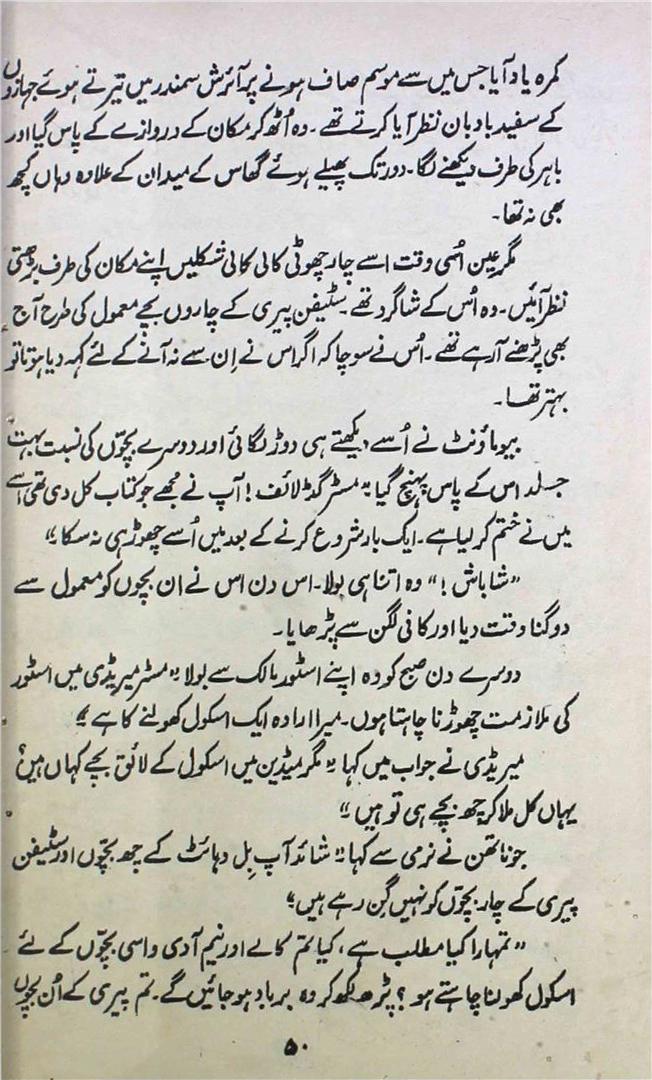 کمرہ یاد آیا جس میں سے موسم صاف ہونے پر آئرش سمندر میں تیرتے ہوئے جہازوں
کے سفید بادبان نظر آیا کرتے تھے۔ وہ اُٹھ کر مکان کے دروازے کے پاس گیا اور
باہر کی طرف دیکھنے لگا۔ دور تک پھیلے ہوئے گھاس کے میدان کے علاوہ وہاں کچھ
بھی نہ تھا۔
مگر عین اُسی وقت اسے چار چھوٹی کالی کالی شکلیں اپنے مکان کی طرف بڑھتی
نظر آئیں۔ وہ اُس کے شاگرد تھے۔ سٹیفن پیری کے چاروں بچے معمول کی طرح آج
بھی پڑھنے آرہے تھے۔ اُس نے سوچا کہ اگر اس نے اِن سے نہ آنے کے لئے کہہ دیا ہوتا تو
بہتر تھا۔
بیوماؤنٹ نے اُسے دیکھتے ہی دوڑ لگائی اور دوسرے بچّوں کی نسبت بہت
جلد اس کے پاس پہنچ گیا۔ "مسٹر گڈ لائف! آپ نے مجھے جو کتاب کل دی تھی اُسے
میں نے ختم کر لیا ہے۔ ایک بار شروع کرنے کے بعد میں اُسے چھوڑ ہی نہ سکا۔"
"شاباش!" وہ اتنا ہی بولا۔ اس دن اس نے ان بچوں کو معمول سے
دوگنا وقت دیا اور کافی لگن سے پڑھایا۔
دوسرے دن صبح کو وہ اپنے اسٹور مالک سے بولا۔ "مسٹر میریڈی میں اسٹور
کی ملازمت چھوڑنا چاہتا ہوں۔ میرا ارادہ ایک اسکول کھولنے کا ہے۔"
میریڈی نے جواب میں کہا۔ "مگر میڈین میں اسکول کے لائق بچے کہاں ہیں؟
یہاں کل ملا کر چھ بچے ہی تو ہیں۔"
جوناتھن نے نرمی سے کہا۔ "شائد آپ بِل وہائٹ کے چھ بچّوں اور سٹیفن
پیری کے چار بچّوں کو نہیں گِن رہے ہیں۔"
"تمہارا کیا مطلب ہے، کیا تم کالے اور نیم آدی واسی بچّوں کے لئے
اسکول کھولنا چاہتے ہو؟ پڑھ لکھ کر وہ برباد ہو جائیں گے۔ تم پیری کے اُن بچوں
۵۰